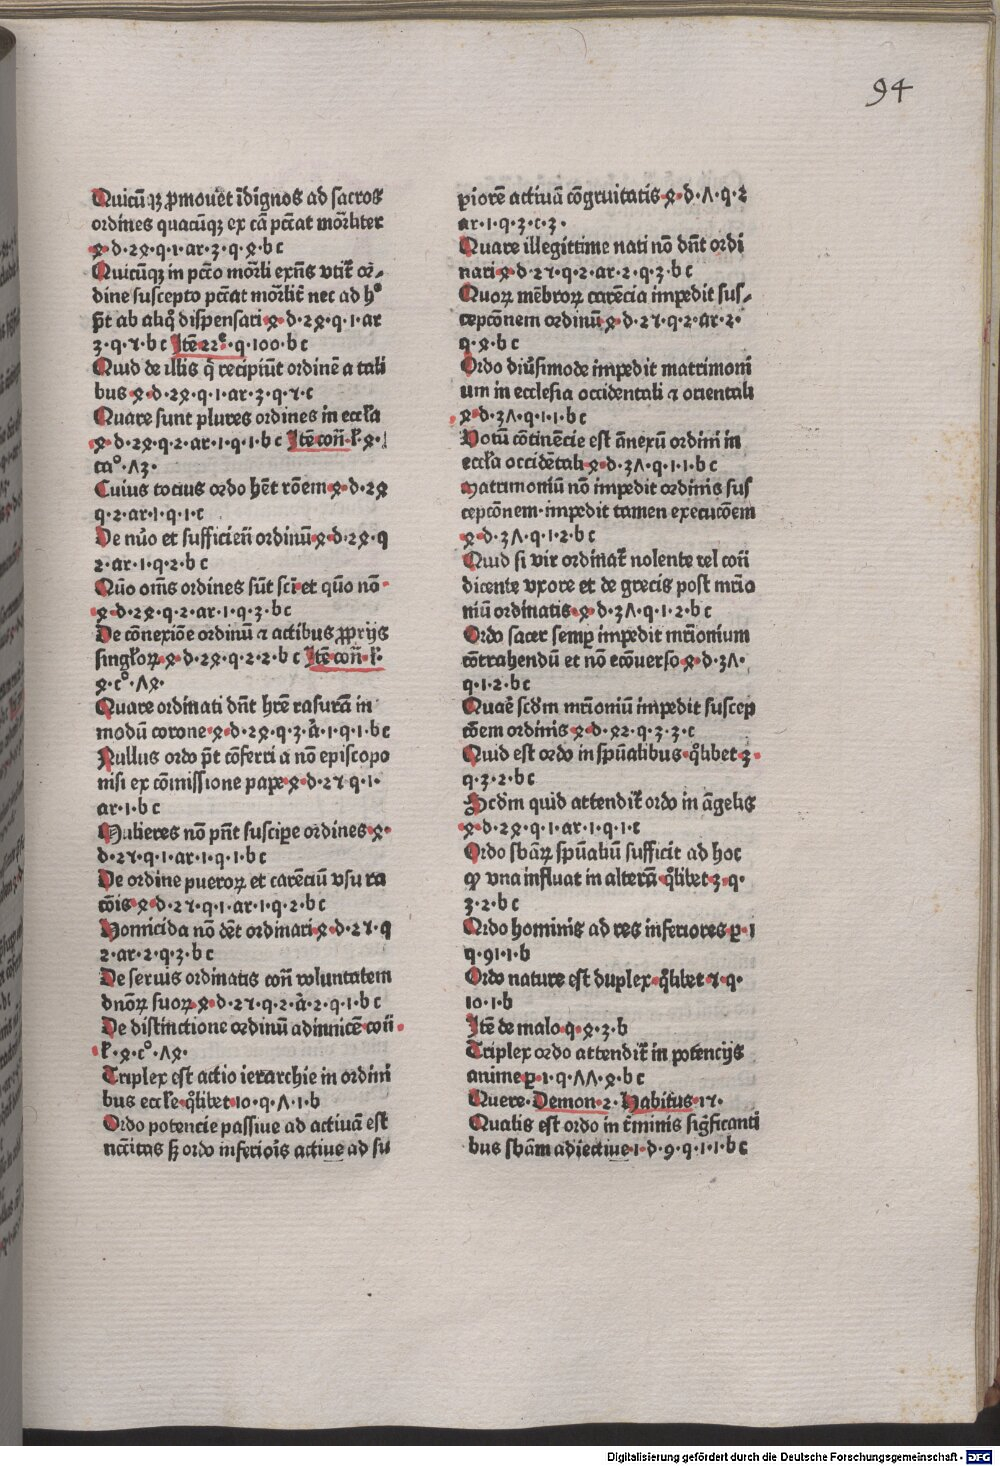 94
Quicūqꝫ ꝓmouēt īdignos ad sacros
ordines quacūqꝫ ex cā pcc̄at mor̄liter
4·d·24·q·1·ar·3·q·4·b c
Quicūqꝫ in pctō mor̄li exñs vtit᷑ or-
dine suscepto pcc̄at mor̄lit̄ nec ad hº
pt̄ ab aliq̊ dispensari·4·d·24·q·1·ar
3·q·5·b c Itē 22ᵉ·q·100·b c
Quid de illis q̄ recipiūt ordinē a tali
bus 4·d·24·q·1·ar·3·q·5·c
Quare sunt plures ordines in eccl̄a
4·d·24·q·2·ar·1·q·1·b c Itē con̄·l̄·4·
caº·73·
Cuius tocius ordo hēt rōem·4·d·24
q·2·ar·1·q·1·c
De nūo et sufficien̄ ordinū·4·d·24·q
2·ar·1·q·2·b c
Quō om̄s ordines sūt sc̄i·et quō nō·
4·d·24·q·2·ar·1·q·3·b c
De cōnexiōe ordinū ⁊ actibus ꝓprijs
singl̄oꝝ·4·d·24·q·2·2·b c Itē con̄·l̄·
4·cº·74·
Quare ordinati dn̄t hr̄e rasurā in
modū corone·4·d·24·q·3·a̅·1·q·1·b c
Nullus ordo pt̄ cōferri a nō episcopo
nisi ex cōmissione pape·4·d·25·q·1·
ar·1·b c
Mulieres nō pn̄t suscipe ordines 4·
d·25·q·1·ar·1·q·1·b c
De ordine pueroꝝ et carēciū vsu ra
cōis·4·d·25·q·1·ar·1·q·2·b c
Homicida nō dēt ordinari·4·d·25·q
2·ar·2·q·3·b c
De seruis ordinatis con̄ voluntatem
dnōꝝ suoꝝ·4·d·25·q·2·a̅·2·q·1·b c
De distinctione ordinū adinuicē con̄·
l̄·4·cº·74·
Triplex est actio ierarchie in ordini
bus eccl̄e·q̊libet 10·q·7·1·b
Ordo potencie passiue ad actiuā est
nc̄citas sꝫ ordo inferior̄is actiue ad su
piorē actiuā cōgruitatis·4·d·7·q·2
ar·1·q·3·c·3·
Quare illegittime nati nō dn̄t ordi
nari·4·d·25·q·2·ar·2·q·3·b c
Quoꝝ mēbroꝝ carēcia impedit sus-
cepcōnem ordinū·4·d·25·q·2·ar·2·
q·4·b c
Ordo diūsimode impedit matrimoni
um in ecclesia occidentali ⁊ orientali
4·d·37·q·1·1·b c
Votū cōtinēcie est ānexū ordini in
eccl̄a occidētali·4·d·37·q·1·1·b c
Matrimoniū nō impedit ordinis sus
cepcōnem·impedit tamen execucōem
4·d·37·q·1·2·b c
Quid si vir ordinat᷑ nolente vel con̄
dicente vxore et de grecis post mr̄io
niū ordinatis·4·d·37·q·1·2·b c
Ordo sacer semꝑ impedit mr̄ionium
cōtrahendū et nō ecōuerso·4·d·37·
q·1·2·b c
Quaē scd̄m mr̄ioniū impedit suscep
cōem ordinis·4·d·42·q·3·3·c
Quid est ordo in spūalibus·q̊libet 3·
q·3·2·b c
Scdm̄ quid attendit᷑ ordo in āgelis
4·d·24·q·1·ar·1·q·1·c
Ordo sbāꝝ spūaliū sufficit ad hoc
ꝙ vna influat in alterā·q̊libet·3·q·
3·2·b c
Ordo hominis ad res inferiores·p·1
q·91·1·b
Ordo nature est duplex·q̊libet·5·q·
10·1·b
Itē de malo·q·4·3·b
Triplex ordo attendit᷑ in potencijs
anime·p·1·q·77·4·b c
Quere·Demon·2·Habitus·15·
Qualis est ordo in t̄minis sig̅ficanti
bus sbām adiectiue·1·d·9·q·1·1·b c
Digitalisierung gefördert durch die Deutsche Forschungsgemeinschaft · DFG